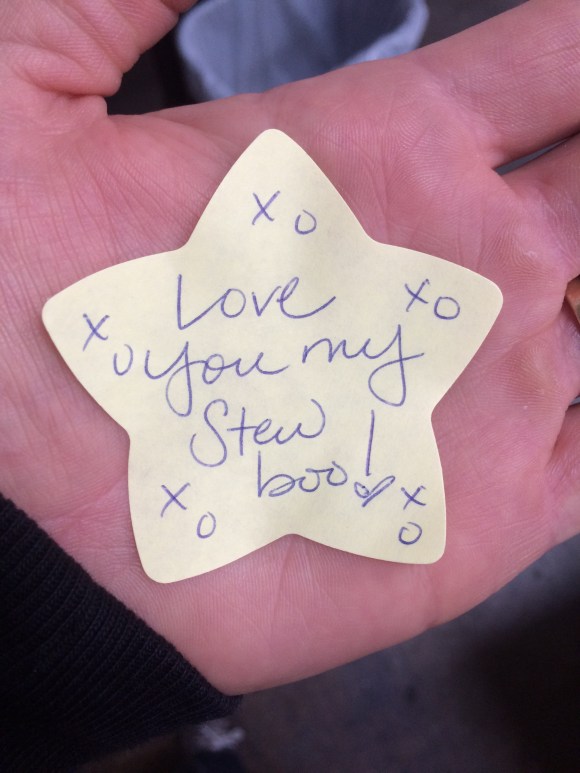 x o
Love
x o
x o
you my
Stew
boo!
x o
x o